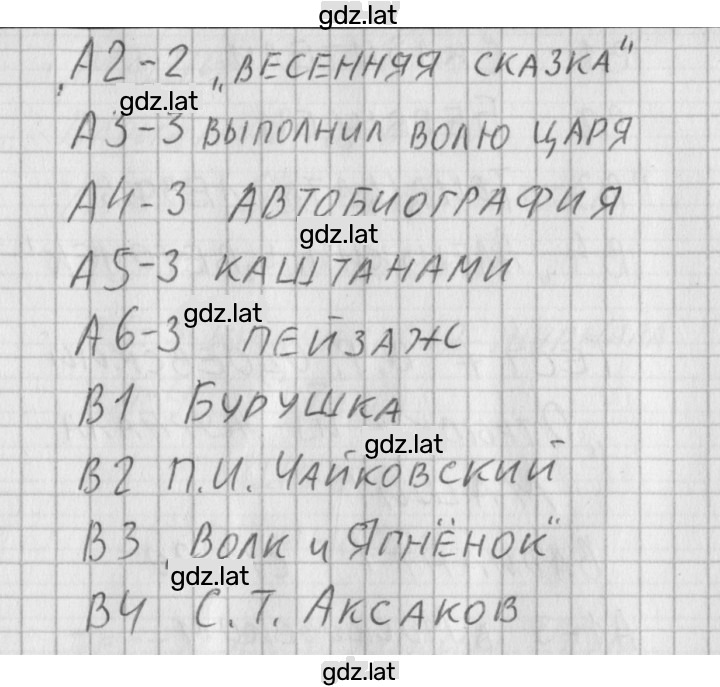 gdz.lat
А2-2 „ВЕСЕННЯЯ СКАЗКА"
gdz.lat
А3-3 ВЫПОЛНИЛ ВОЛЮ ЦАРЯ
А4-3 АВТОБИОГРАФИЯ
gdz.lat
А5-3 КАШТАНАМИ
gdz.lat
А6-3 ПЕЙЗАЖ
В1 БУРУШКА
gdz.lat
В2 П.И. ЧАЙКОВСКИЙ
В3 „ВОЛК и ЯГНЁНОК"
gdz.lat
В4 С. Т. АКСАКОВ
gdz.lat